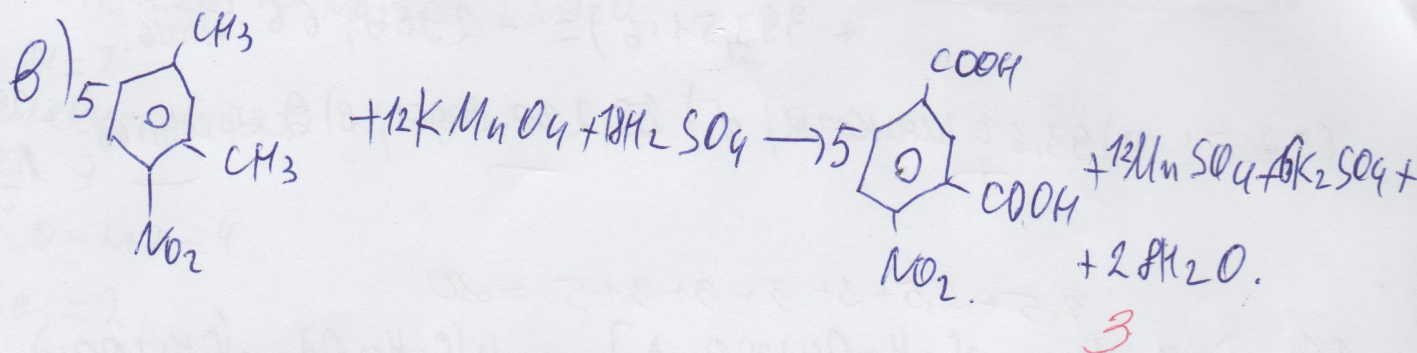 CH3
в) 5 CH3 NO2 +12KMnO4+18H2SO4 →5 COOH COOH NO2. +12MnSO4+6K2SO4+
+28H2O.
3